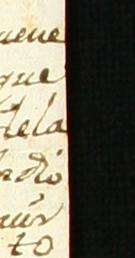 uene
que
dela
ndio
to